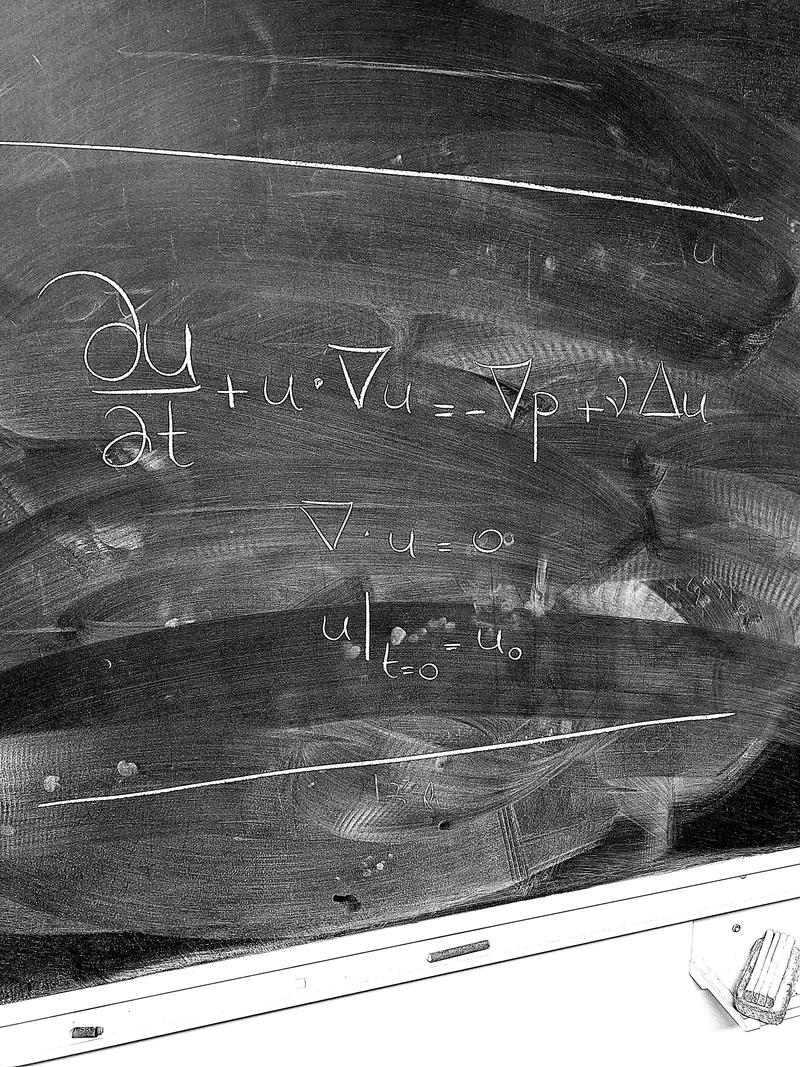 ∂u/∂t + u · ∇u = -∇p + ν Δu
∇ · u = 0
u|t=0 = u₀